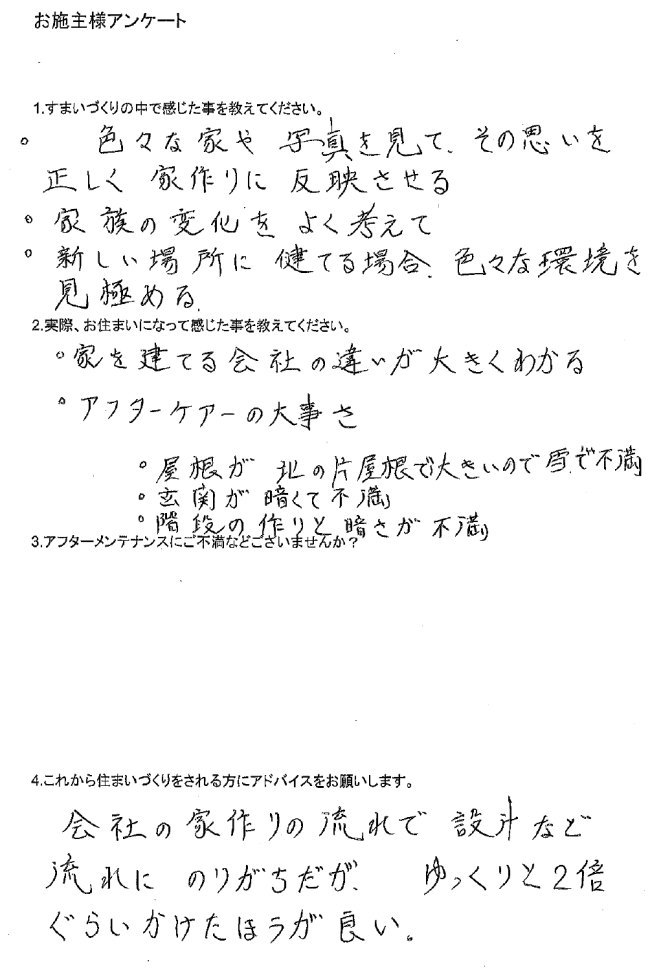 お施主様アンケート
1.すまいづくりの中で感じた事を教えてください。
。 色々な家や 写真を見て、その思いを
正しく 家作りに 反映させる
。家族の変化を よく考えて
。新しい場所に 健てる場合、色々な環境を
見極める。
2.実際、お住まいになって感じた事を教えてください。
。家を建てる会社の違いが大きくわかる
。アフターケアーの大事さ
。屋根が 北の片屋根で大きいので雪で不満
。玄関が 暗くて不満
。階段の作りと暗さが 不満
3.アフターメンテナンスにご不満などございませんか？
4.これから住まいづくりをされる方にアドバイスをお願いします。
会社の家作りの流れで 設計など
流れに のりがちだが、 ゆっくりと2倍
ぐらいかけたほうが良い。